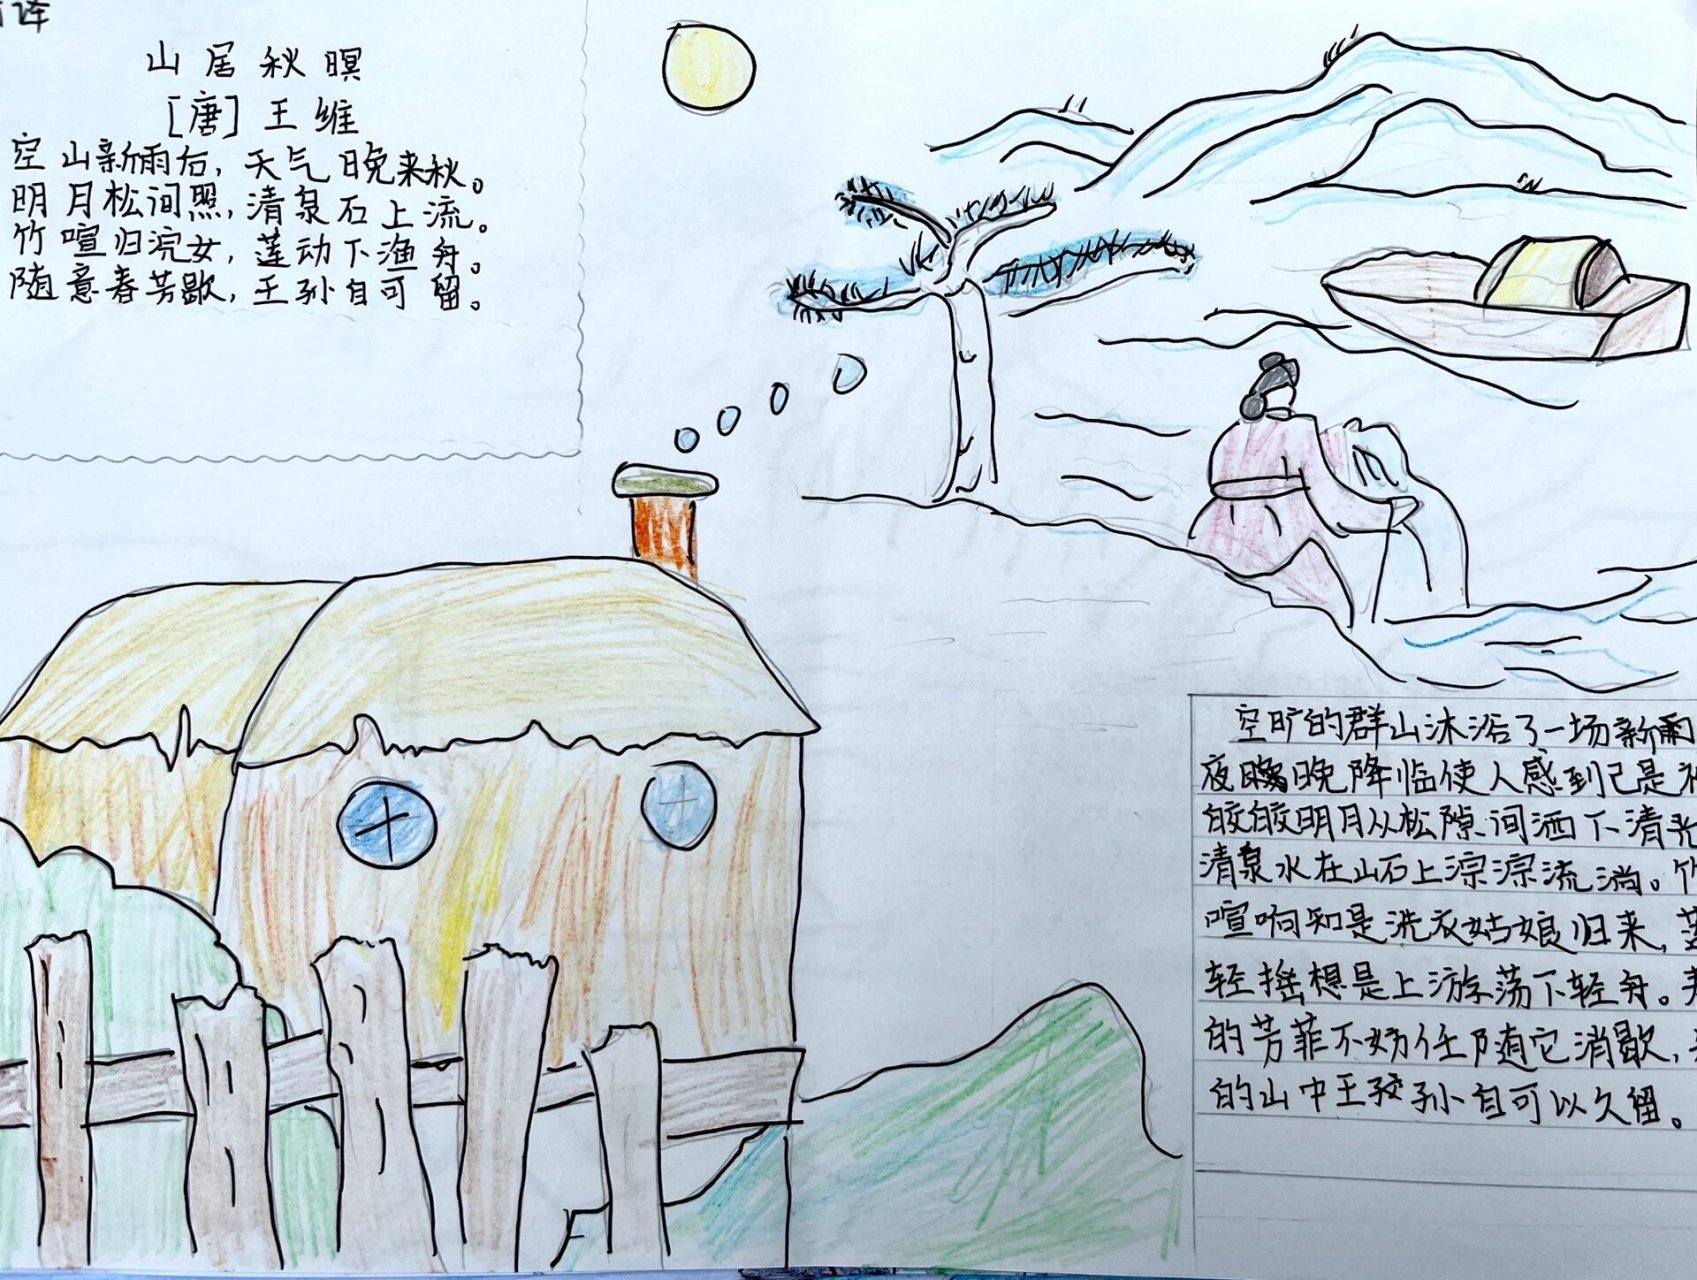 译
山居秋暝
[唐]王维
空山新雨后,天气晚来秋。
明月松间照,清泉石上流。
竹喧归浣女,莲动下渔舟。
随意春芳歇,王孙自可留。
空旷的群山沐浴了一场新雨
夜晚降临使人感到已是
皎皎明月从松隙间洒下清光
清泉水在山石上淙淙流淌。竹
喧响知是洗衣姑娘归来,
轻摇想是上游荡下轻舟。
的芳菲不妨任随它消歇,
的山中王孙自可以久留。